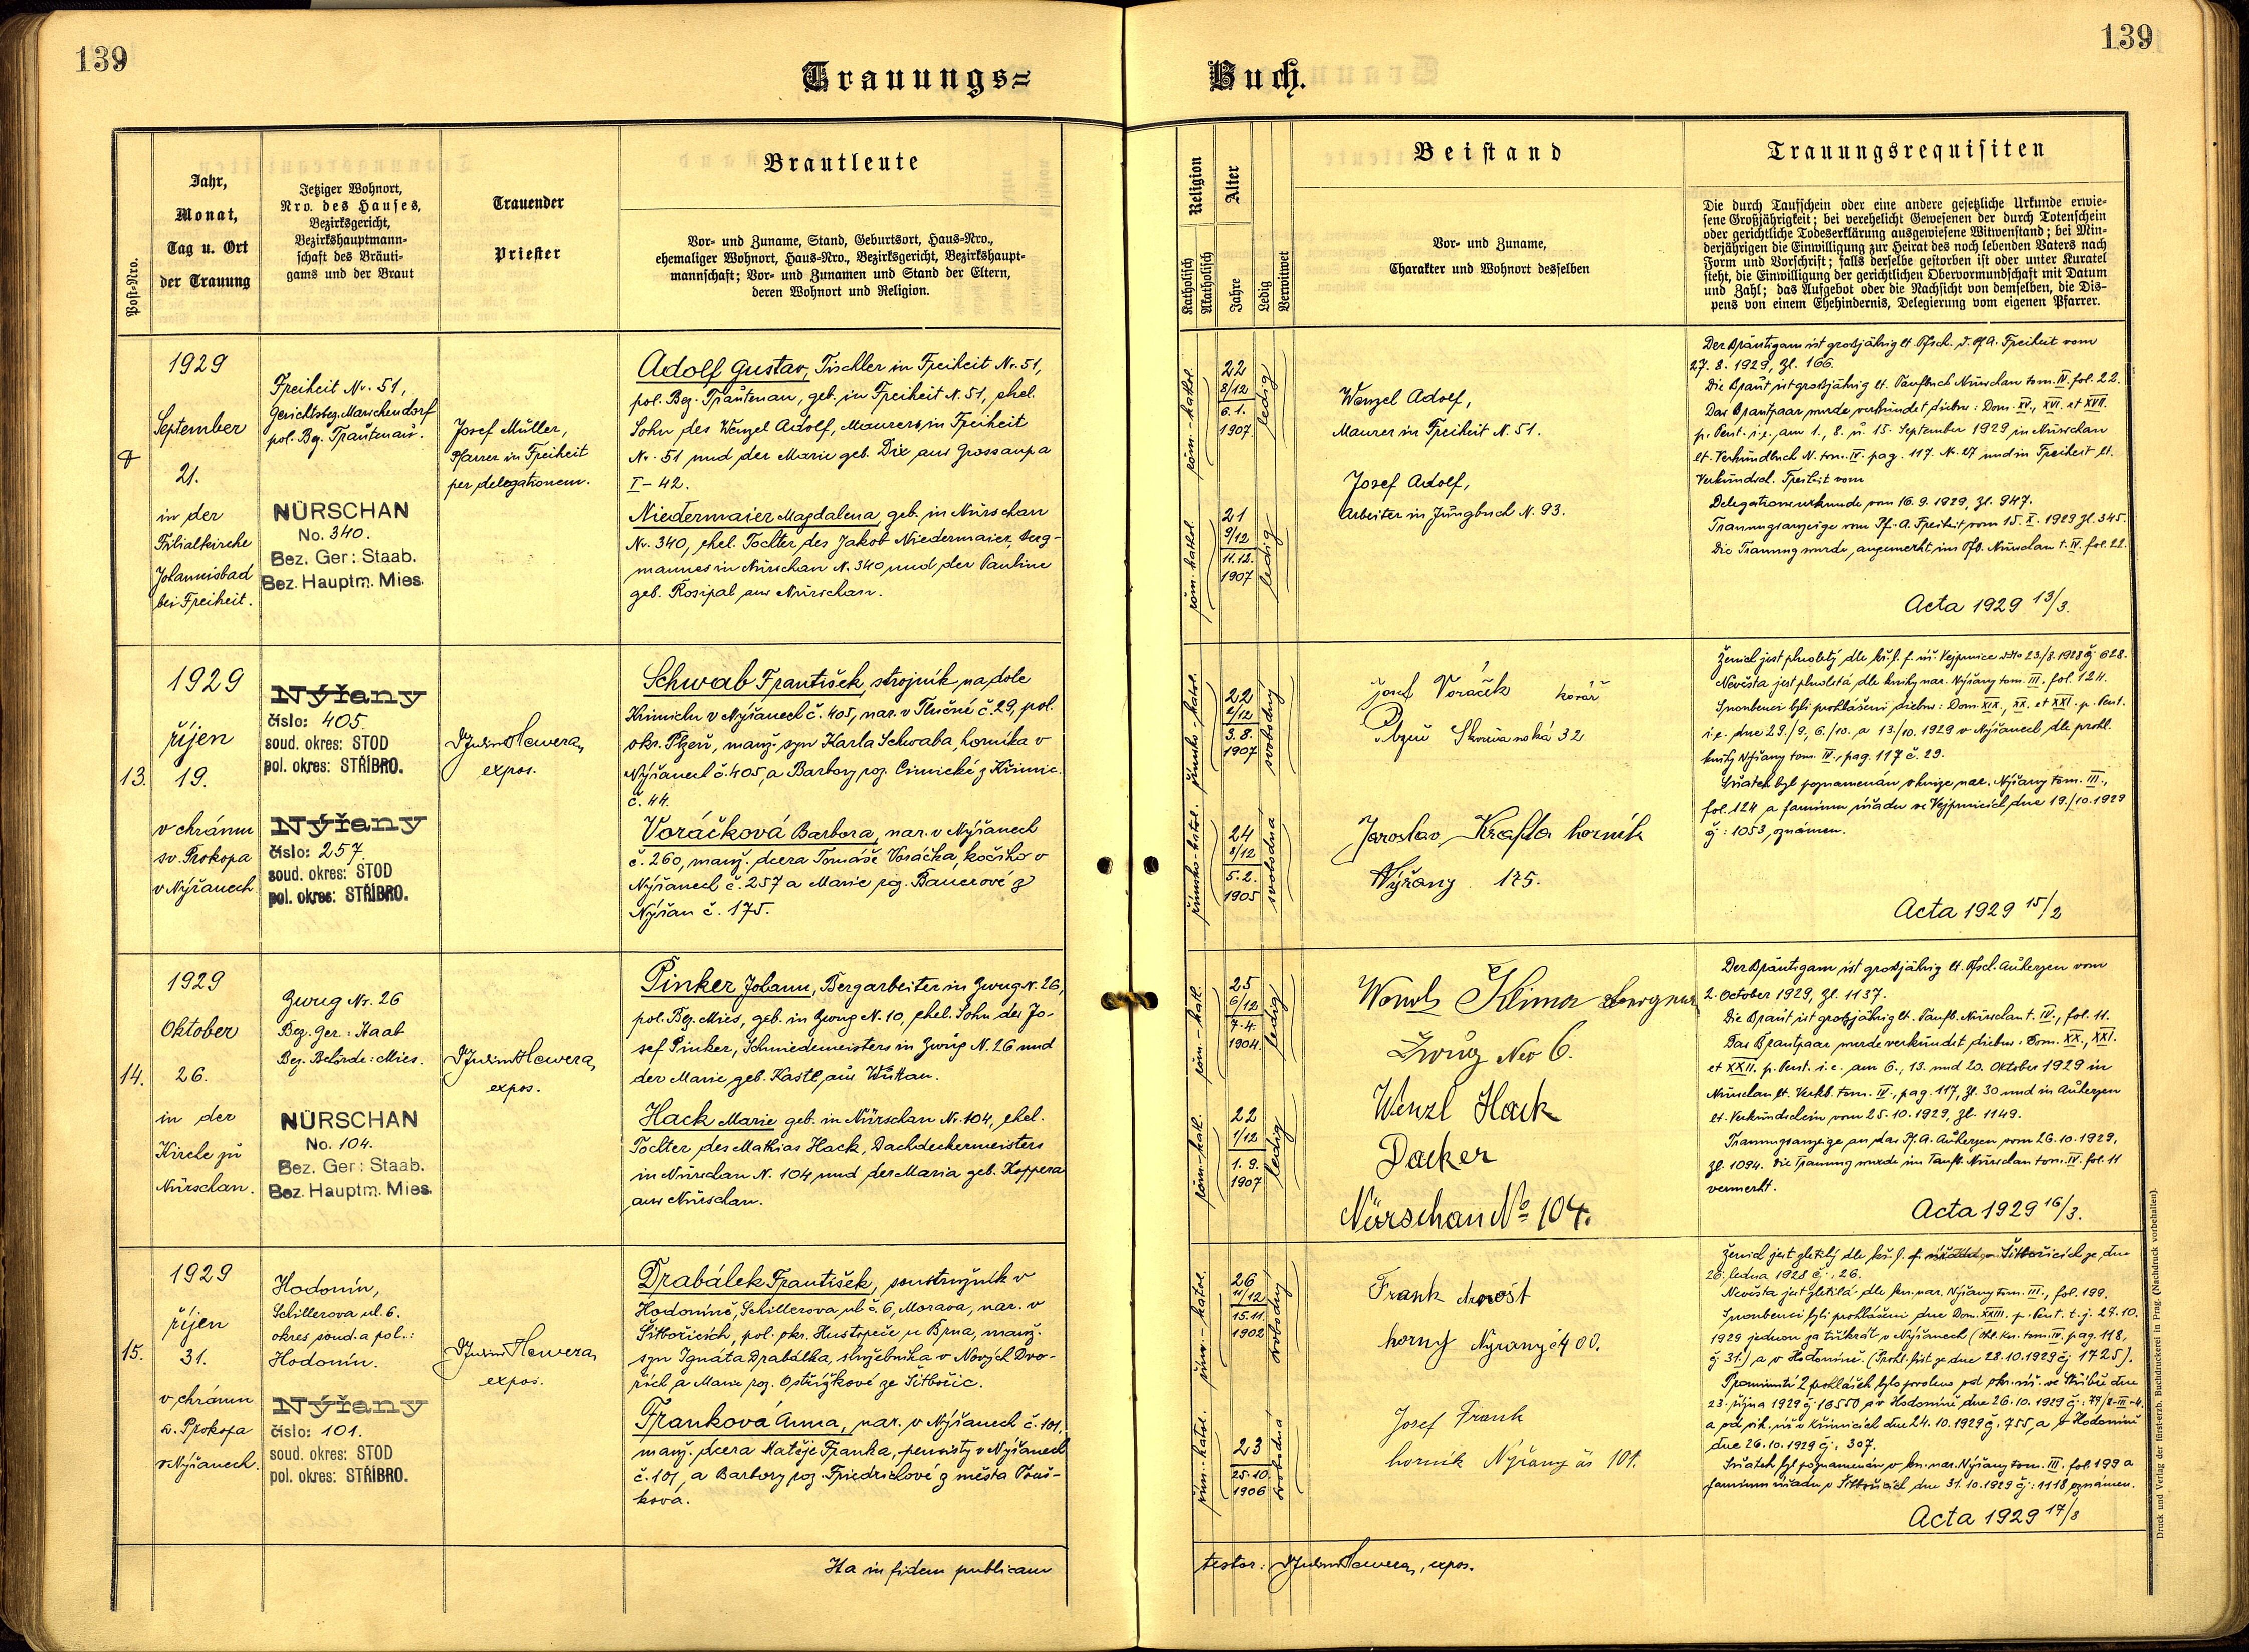 139
139
Trauungs=
Buch.
Post-Nro.
Jahr,
Monat,
Tag u. Ort
der Trauung
Jetziger Wohnort,
Nro. des Hauses,
Bezirksgericht,
Bezirkshauptmann-
schaft des Bräuti-
gams und der Braut
Trauender
Priester
Brautleute
Vor- und Zuname, Stand, Geburtsort, Haus-Nro.,
ehemaliger Wohnort, Haus-Nro., Bezirksgericht, Bezirkshaupt-
mannschaft; Vor- und Zunamen und Stand der Eltern,
deren Wohnort und Religion.
Religion
Katholisch
Akatholisch
Alter
Jahre
Ledig
Verwitwet
Beistand
Vor- und Zuname,
Charakter und Wohnort desselben
Trauungsrequisiten
Die durch Taufschein oder eine andere gesetzliche Urkunde erwie-
sene Großjährigkeit; bei verehelicht Gewesenen der durch Totenschein
oder gerichtliche Todeserklärung ausgewiesene Witwenstand; bei Min-
derjährigen die Einwilligung zur Heirat des noch lebenden Vaters nach
Form und Vorschrift; falls derselbe gestorben ist oder unter Kuratel
steht, die Einwilligung der gerichtlichen Obervormundschaft mit Datum
und Zahl; das Aufgebot oder die Nachsicht von demselben, die Dis-
pens von einem Ehehindernis, Delegierung vom eigenen Pfarrer.
1929
September
21.
in der
Filialkirche
Johannisbad
bei Freiheit.
Freiheit Nr. 51,
Gerichtsbez. Marschendorf
pol. Bez. Trautenau.
NÜRSCHAN
No. 340.
Bez. Ger: Staab.
Bez. Hauptm. Mies.
Josef Müller,
Pfarrer in Freiheit
per delegationem.
Adolf Gustav, Tischler in Freiheit Nr. 51,
pol. Bez. Trautenau, geb. in Freiheit N. 51, ehel.
Sohn des Wenzel Adolf, Maurers in Freiheit
Nr. 51 und der Marie geb. Dix aus Grossaupa
I - 42.
Niedermaier Magdalena, geb. in Nürschan
Nr. 340, ehel. Tochter des Jakob Niedermaier, Berg-
mannes in Nürschan N. 340 und der Pauline
geb. Rosipal aus Nürschan.
röm.-kathol.
22
8/12
6. 1.
1907
ledig
röm. kathol.
21
9/12
11. 12.
1907
ledig
Wenzel Adolf,
Maurer in Freiheit N. 51.
Josef Adolf,
Arbeiter in Jungbuch N. 93.
Der Bräutigam ist großjährig lt. Tfsch. d. Pf. A. Freiheit vom
27. 8. 1929, Zl. 166.
Die Braut ist großjährig lt. Taufbuch Nürschan tom. IV. fol. 22.
Das Brautpaar wurde verkündet diebus: Dom. XV., XVI. et XVII.
p. Pent. i. e. am 1., 8. u. 15. September 1929 in Nürschan
lt. Verkündbuch N. tom. IV. pag. 117. N. 27 und in Freiheit lt.
Verkündsch. Freiheit vom
Delegationsurkunde vom 16. 9. 1929, Zl. 947.
Trauungsanzeige vom Pf. A. Freiheit vom 15. X. 1929 Zl. 345.
Die Trauung wurde angemerkt im Tfb. Nürschan t. IV. fol. 22.
Acta 1929 13/3.
13.
1929
říjen
19.
v chrámu
sv. Prokopa
v Nýřanech
Nýřany
číslo: 405
soud. okres: STOD
pol. okres: STŘÍBRO.
Nýřany
číslo: 257.
soud. okres: STOD
pol. okres: STŘÍBRO.
Hawera,
expos.
Schwab František, strojník na dole
Krimichu v Nýřanech č. 405, nar. v Tlučné č. 29, pol.
okr. Plzeň, manž. syn Karla Schwaba, horníka v
Nýřanech č. 405, a Barbory roz. Cimické z Křimic
č. 44.
Voráčková Barbora, nar. v Nýřanech
č. 260, manž. dcera Tomáše Voráčka, kočího v
Nýřanech č. 257 a Marie roz. Bauerové z
Nýřan č. 175.
římsko-katol.
22
2/12
3. 8.
1907
svobodný
římsko-katol.
24
8/12
5. 2.
1905
svobodná
Josef Voráček kovář
Plzeň 32
Jaroslav Krafta horník
Nýřany 175.
Ženich jest plnoletý dle kř. l. f. úř. Vejprnice ddto 23./8. 1928 čj 628.
Nevěsta jest plnoletá dle knihy nar. Nýřany tom. III. fol. 124.
Snoubenci byli prohlášeni diebus: Dom. XIX., XX. et XXI. p. Pent.
i. e. dne 29./9, 6./10. a 13/10. 1929 v Nýřanech dle prohl.
knihy Nýřany tom. IV., pag. 117 č. 29.
Sňatek byl poznamenán v knize nar. Nýřany tom. III.,
fol. 124 a farnímu úřadu ve Vejprnicích dne 19./10. 1929
čj: 1053, oznámen.
Acta 1929 15/2
14.
1929
Oktober
26.
in der
Kirche zu
Nürschan.
Zwug Nr. 26
Bez. Ger.: Staab
Bez. Behörde: Mies.
NÜRSCHAN
No. 104.
Bez. Ger: Staab.
Bez. Hauptm. Mies.
Hawera,
expos.
Pinker Johann, Bergarbeiter in Zwug N. 26,
pol. Bez. Mies, geb. in Zwug N. 10, ehel. Sohn des Jo-
sef Pinker, Schmiedemeisters in Zwug N. 26 und
der Marie, geb. Kastl aus Wuttau.
Hack Marie geb. in Nürschan Nr. 104, ehel.
Tochter des Mathias Hack, Dachdeckermeisters
in Nürschan N. 104 und der Maria geb. Koppera
aus Nürschan.
röm.-kath.
25
6/12
7. 4.
1904.
ledig
röm.-kath.
22
1/12
1. 9.
1907
ledig
Klima
Zwug Nro 6.
Wenzl Hack
Dacker
Nürschan No 104.
Der Bräutigam ist großjährig lt. Tfsch. Auherzen vom
2. October 1929, Zl. 1137.
Die Braut ist großjährig lt. Taufb. Nürschan t. IV., fol. 11.
Das Brautpaar wurde verkündet diebus: Dom. XX., XXI.
et XXII. p. Pent. i. e. am 6., 13. und 20. Oktober 1929 in
Nürschan lt. Verkb. tom. IV., pag. 117, Zl. 30 und in Auherzen
lt. Verkündschein vom 25. 10. 1929, Zl. 1149.
Trauungsanzeige an das Pf. A. Auherzen vom 26. 10. 1929,
Zl. 1094. Die Trauung wurde im Taufb. Nürschan tom. IV. fol. 11
vermerkt.
Acta 1929 16/3.
15.
1929
říjen
31.
v chrámu
sv. Prokopa
v Nýřanech.
Hodonín,
Schillerova ul. 6.
okres soud. a pol.:
Hodonín.
Nýřany
číslo: 101.
soud. okres: STOD
pol. okres: STŘÍBRO.
Hawera,
expos.
Drabálek František, soustružník v
Hodoníně, Schillerova ul. č. 6, Morava, nar. v
Šitbořicích, pol. okr. Hustopeče u Brna, manž.
syn Ignáta Drabálka, služebníka v Nových Dvo-
řích a Marie roz. Opstřížkové ze Šitbořic.
Franková Anna, nar. v Nýřanech č. 101,
manž. dcera Matěje Franka, pensisty v Nýřanech
č. 101, a Barbory roz. Friedrichové z města Touš-
kova.
řím.-katol.
26
11/12
15. 11.
1902
svobodný
řím.-katol.
23
25. 10.
1906
svobodná
Frank Arnošt
horný Nýrany č 400.
Josef Frank
horník Nýřany čs 101.
Ženich jest zletilý dle kř. l. Šitbořicích ze dne
26. ledna 1928 čj.: 26.
Nevěsta jest zletilá dle kn. nar. Nýřany tom. III., fol. 199.
Snoubenci byli prohlášeni dne Dom. XXIII. p. Pent. t. j. 27. 10.
1929 jednou za třikrát v Nýřanech (ohl. kn. tom. IV. pag. 118,
čj 31.) a v Hodoníně. (Prohl. list ze dne 28. 10. 1929 čj 1725).
Prominutí 2 prohlášek bylo povoleno od okr. úř. ve Stříbře dne
23. října 1929 čj 16550 a v Hodoníně, dne 26. 10. 1929 čj: 49/8-III-4.
a od vik. úř. v Křimicích dne 24. 10. 1929 čj. 755, a v Hodoníně
dne 26. 10. 1929 čj: 307.
Sňatek byl poznamenán v kn. nar. Nýřany tom. III. fol. 199 a
farnímu úřadu v Šitbořicích dne 31. 10. 1929 čj: 1118 oznámen.
Acta 1929 17/8
Ita in fidem publicam
testor: Hawera, expos.
Druck und Verlag der fürst-erzb. Buchdruckerei in Prag. (Nachdruck vorbehalten).